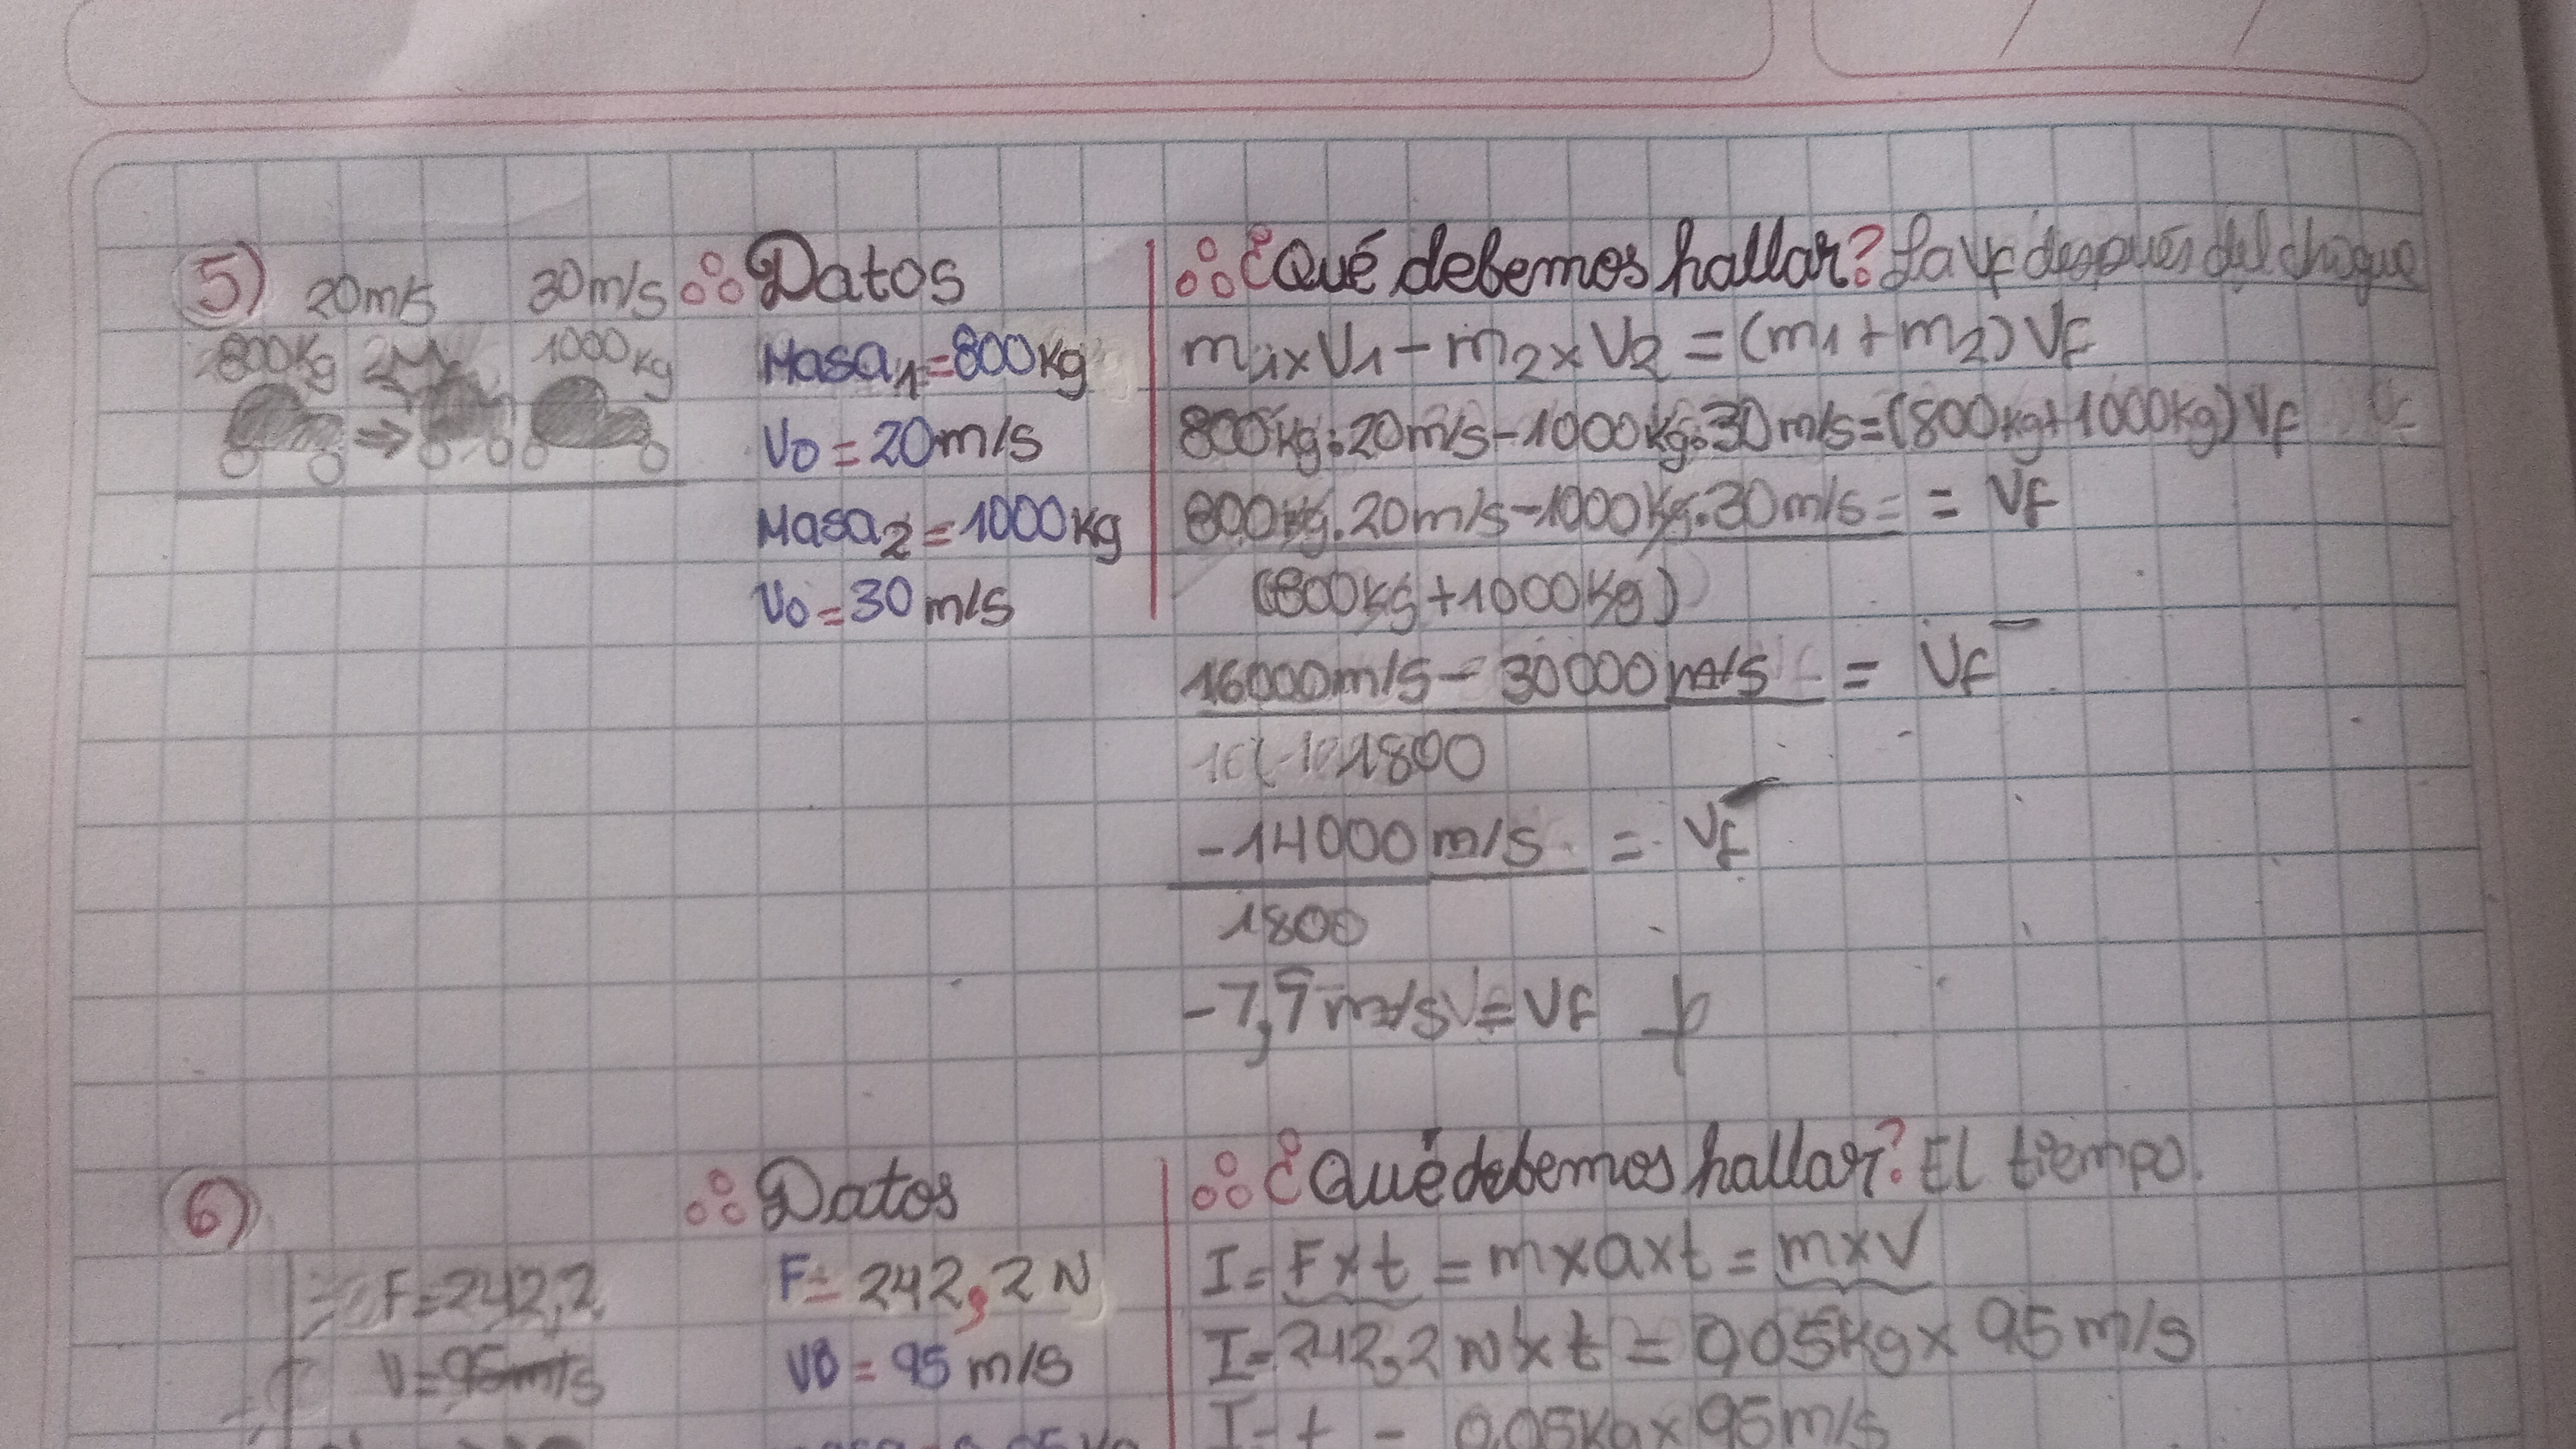 5) 20m/s 30m/s
800Kg 1000Kg
Datos
Masa1=800Kg
Vo=20m/s
Masa2=1000Kg
Vo=30m/s
¿Qué debemos hallar? La Vf después del choque
m1xV1-m2xV2=(m1+m2)Vf
800Kg.20m/s-1000Kg.30m/s=(800Kg+1000Kg)Vf
800Kg.20m/s-1000Kg.30m/s = Vf
(800Kg+1000Kg)
16000m/s-30000m/s = Vf
1800
-14000m/s = Vf
1800
-7,7m/s=Vf
6)
F=242,2
V=95m/s
Datos
F=242,2N
Vo=95m/s
¿Qué debemos hallar? El tiempo.
I=Fxt=mxaxt=mxV
I=242,2Nxt=0,05Kgx95m/s
I=t=0,05Kgx95m/s